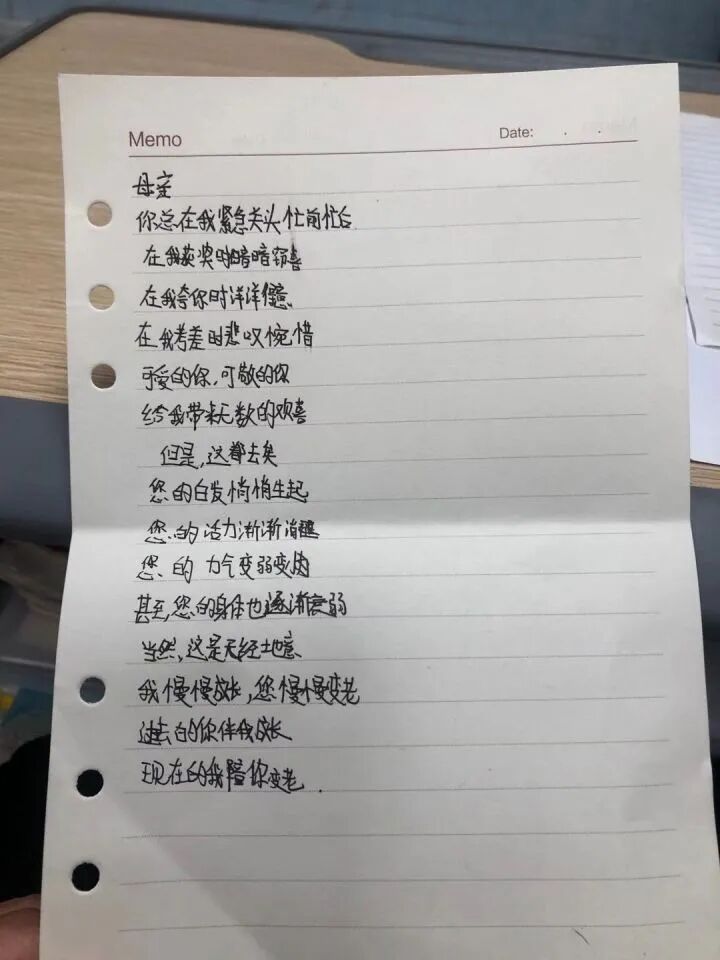 Memo
Date: . .
母亲
你总在我紧急关头忙前忙后
在我获奖时暗暗窃喜
在我夸你时洋洋得意
在我考差时悲叹惋惜
可爱的你,可敬的你
给我带来无数的欢喜
但是,这都去矣
您的白发悄悄生起
您的活力渐渐消
您的力气变弱变
甚至,您的身体也逐渐衰弱
当然,这是天经地意
我慢慢成长,您慢慢变老
过去的你伴我成长
现在的我陪你变老.